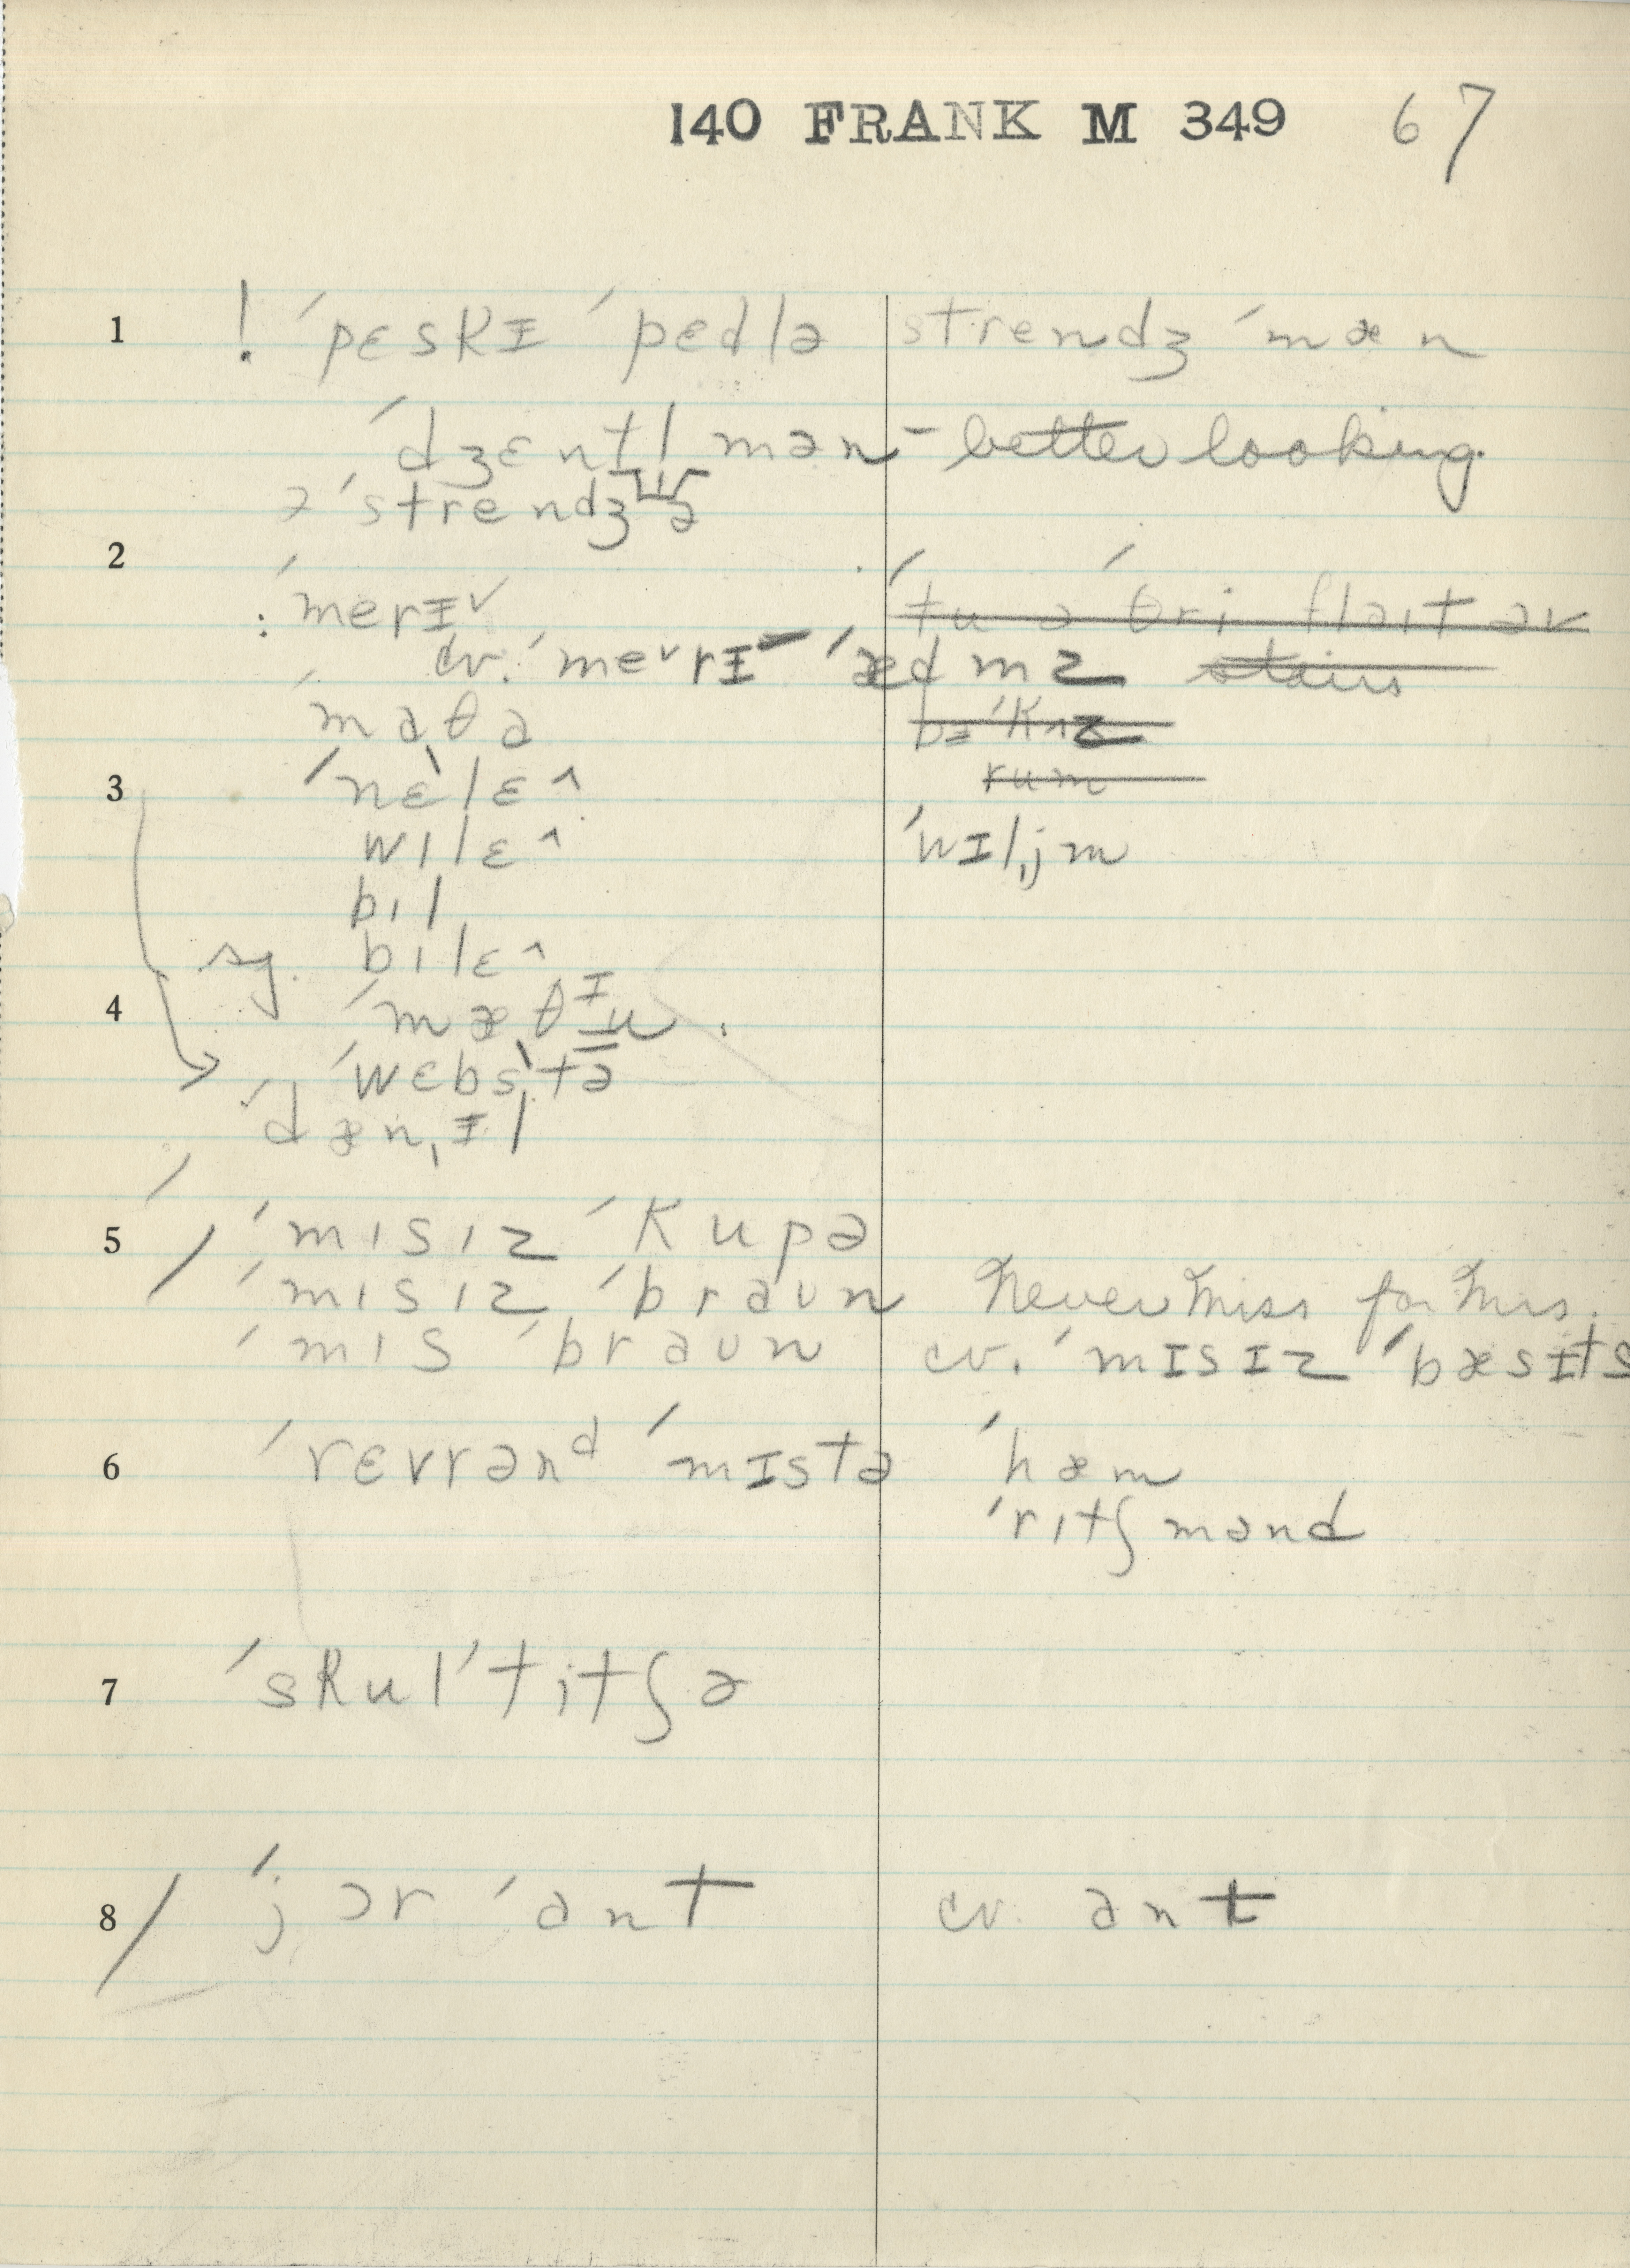 140 FRANK M 349 67
1 ! ˈpɛskɪ ˈpɛdlə strendʒ ˈmæn
ˈdʒɛntl mən - better looking
ə ˈstrendʒə
2
: ˈmerɪ˅ ˈtu ə ˈθri flaɪt əv
cv. ˈme˅rɪ ˈædmz stairs
ˈmaθə bɪˈkʌz
rum
3 ˈnɛlɛ^
wɪlɛ^ ˈwɪljm
bɪl
sg. bɪlɛ^
4 ˈmæθɪu
ˈwɛbstə
ˈdænɪl
5 / ˈmɪsɪz ˈkupə
ˈmɪsɪz ˈbraʊn Never Miss for Mrs.
ˈmɪs ˈbraʊn cv. ˈmɪsɪz ˈbæsɪts
6 ˈrɛvrənd ˈmɪstə ˈhæm
ˈrɪtʃmənd
7 ˈskul ˈtitʃə
8 / ˈjɔr ˈant cv. ant